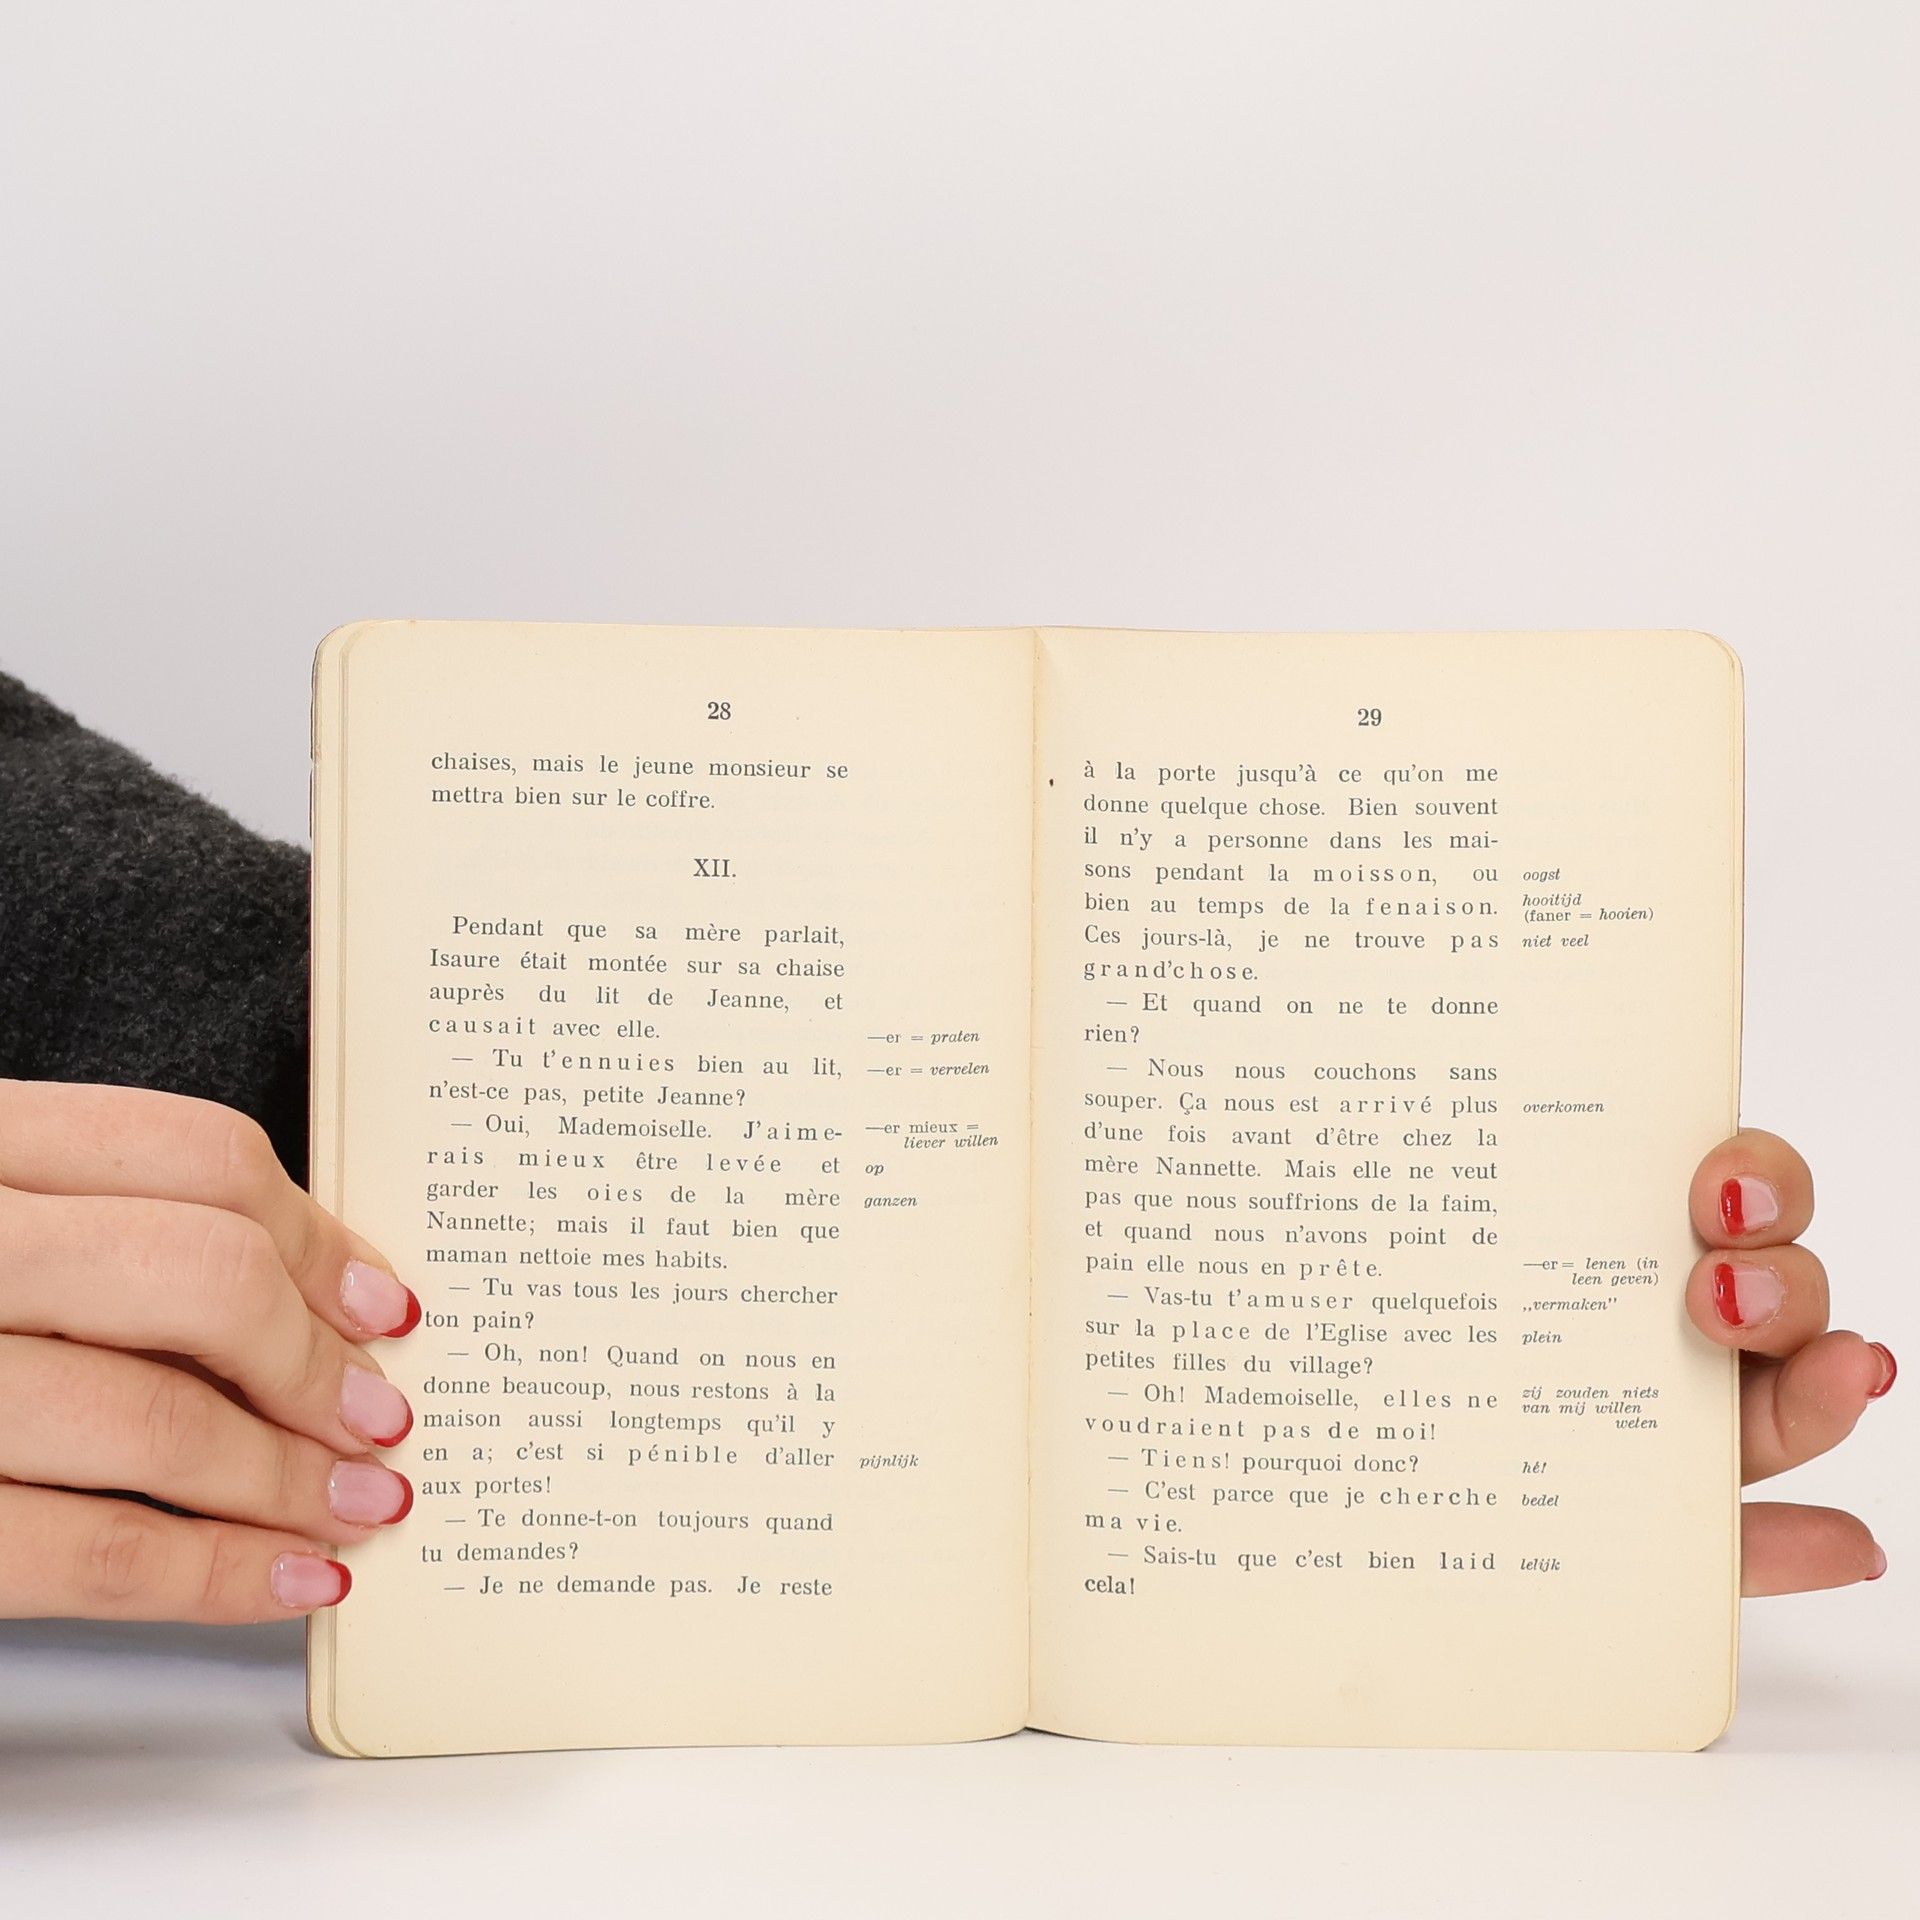 28
chaises, mais le jeune monsieur se
mettra bien sur le coffre.
XII.
Pendant que sa mère parlait,
Isaure était montée sur sa chaise
auprès du lit de Jeanne, et
causait avec elle.
—er = praten
— Tu t'ennuies bien au lit,
—er = vervelen
n'est-ce pas, petite Jeanne?
— Oui, Mademoiselle. J'aime-
—er mieux =
liever willen
rais mieux être levée et
op
garder les oies de la mère
ganzen
Nannette; mais il faut bien que
maman nettoie mes habits.
— Tu vas tous les jours chercher
ton pain?
— Oh, non! Quand on nous en
donne beaucoup, nous restons à la
maison aussi longtemps qu'il y
en a; c'est si pénible d'aller
pijnlijk
aux portes!
— Te donne-t-on toujours quand
tu demandes?
— Je ne demande pas. Je reste
29
à la porte jusqu'à ce qu'on me
donne quelque chose. Bien souvent
il n'y a personne dans les mai-
sons pendant la moisson, ou
oogst
bien au temps de la fenaison.
hooitijd
(faner = hooien)
Ces jours-là, je ne trouve pas
niet veel
grand'chose.
— Et quand on ne te donne
rien?
— Nous nous couchons sans
souper. Ça nous est arrivé plus
overkomen
d'une fois avant d'être chez la
mère Nannette. Mais elle ne veut
pas que nous souffrions de la faim,
et quand nous n'avons point de
pain elle nous en prête.
—er = lenen (in
leen geven)
— Vas-tu t'amuser quelquefois
„vermaken”
sur la place de l'Eglise avec les
plein
petites filles du village?
— Oh! Mademoiselle, elles ne
zij zouden niets
van mij willen
weten
voudraient pas de moi!
— Tiens! pourquoi donc?
hé!
— C'est parce que je cherche
bedel
ma vie.
— Sais-tu que c'est bien laid
lelijk
cela!